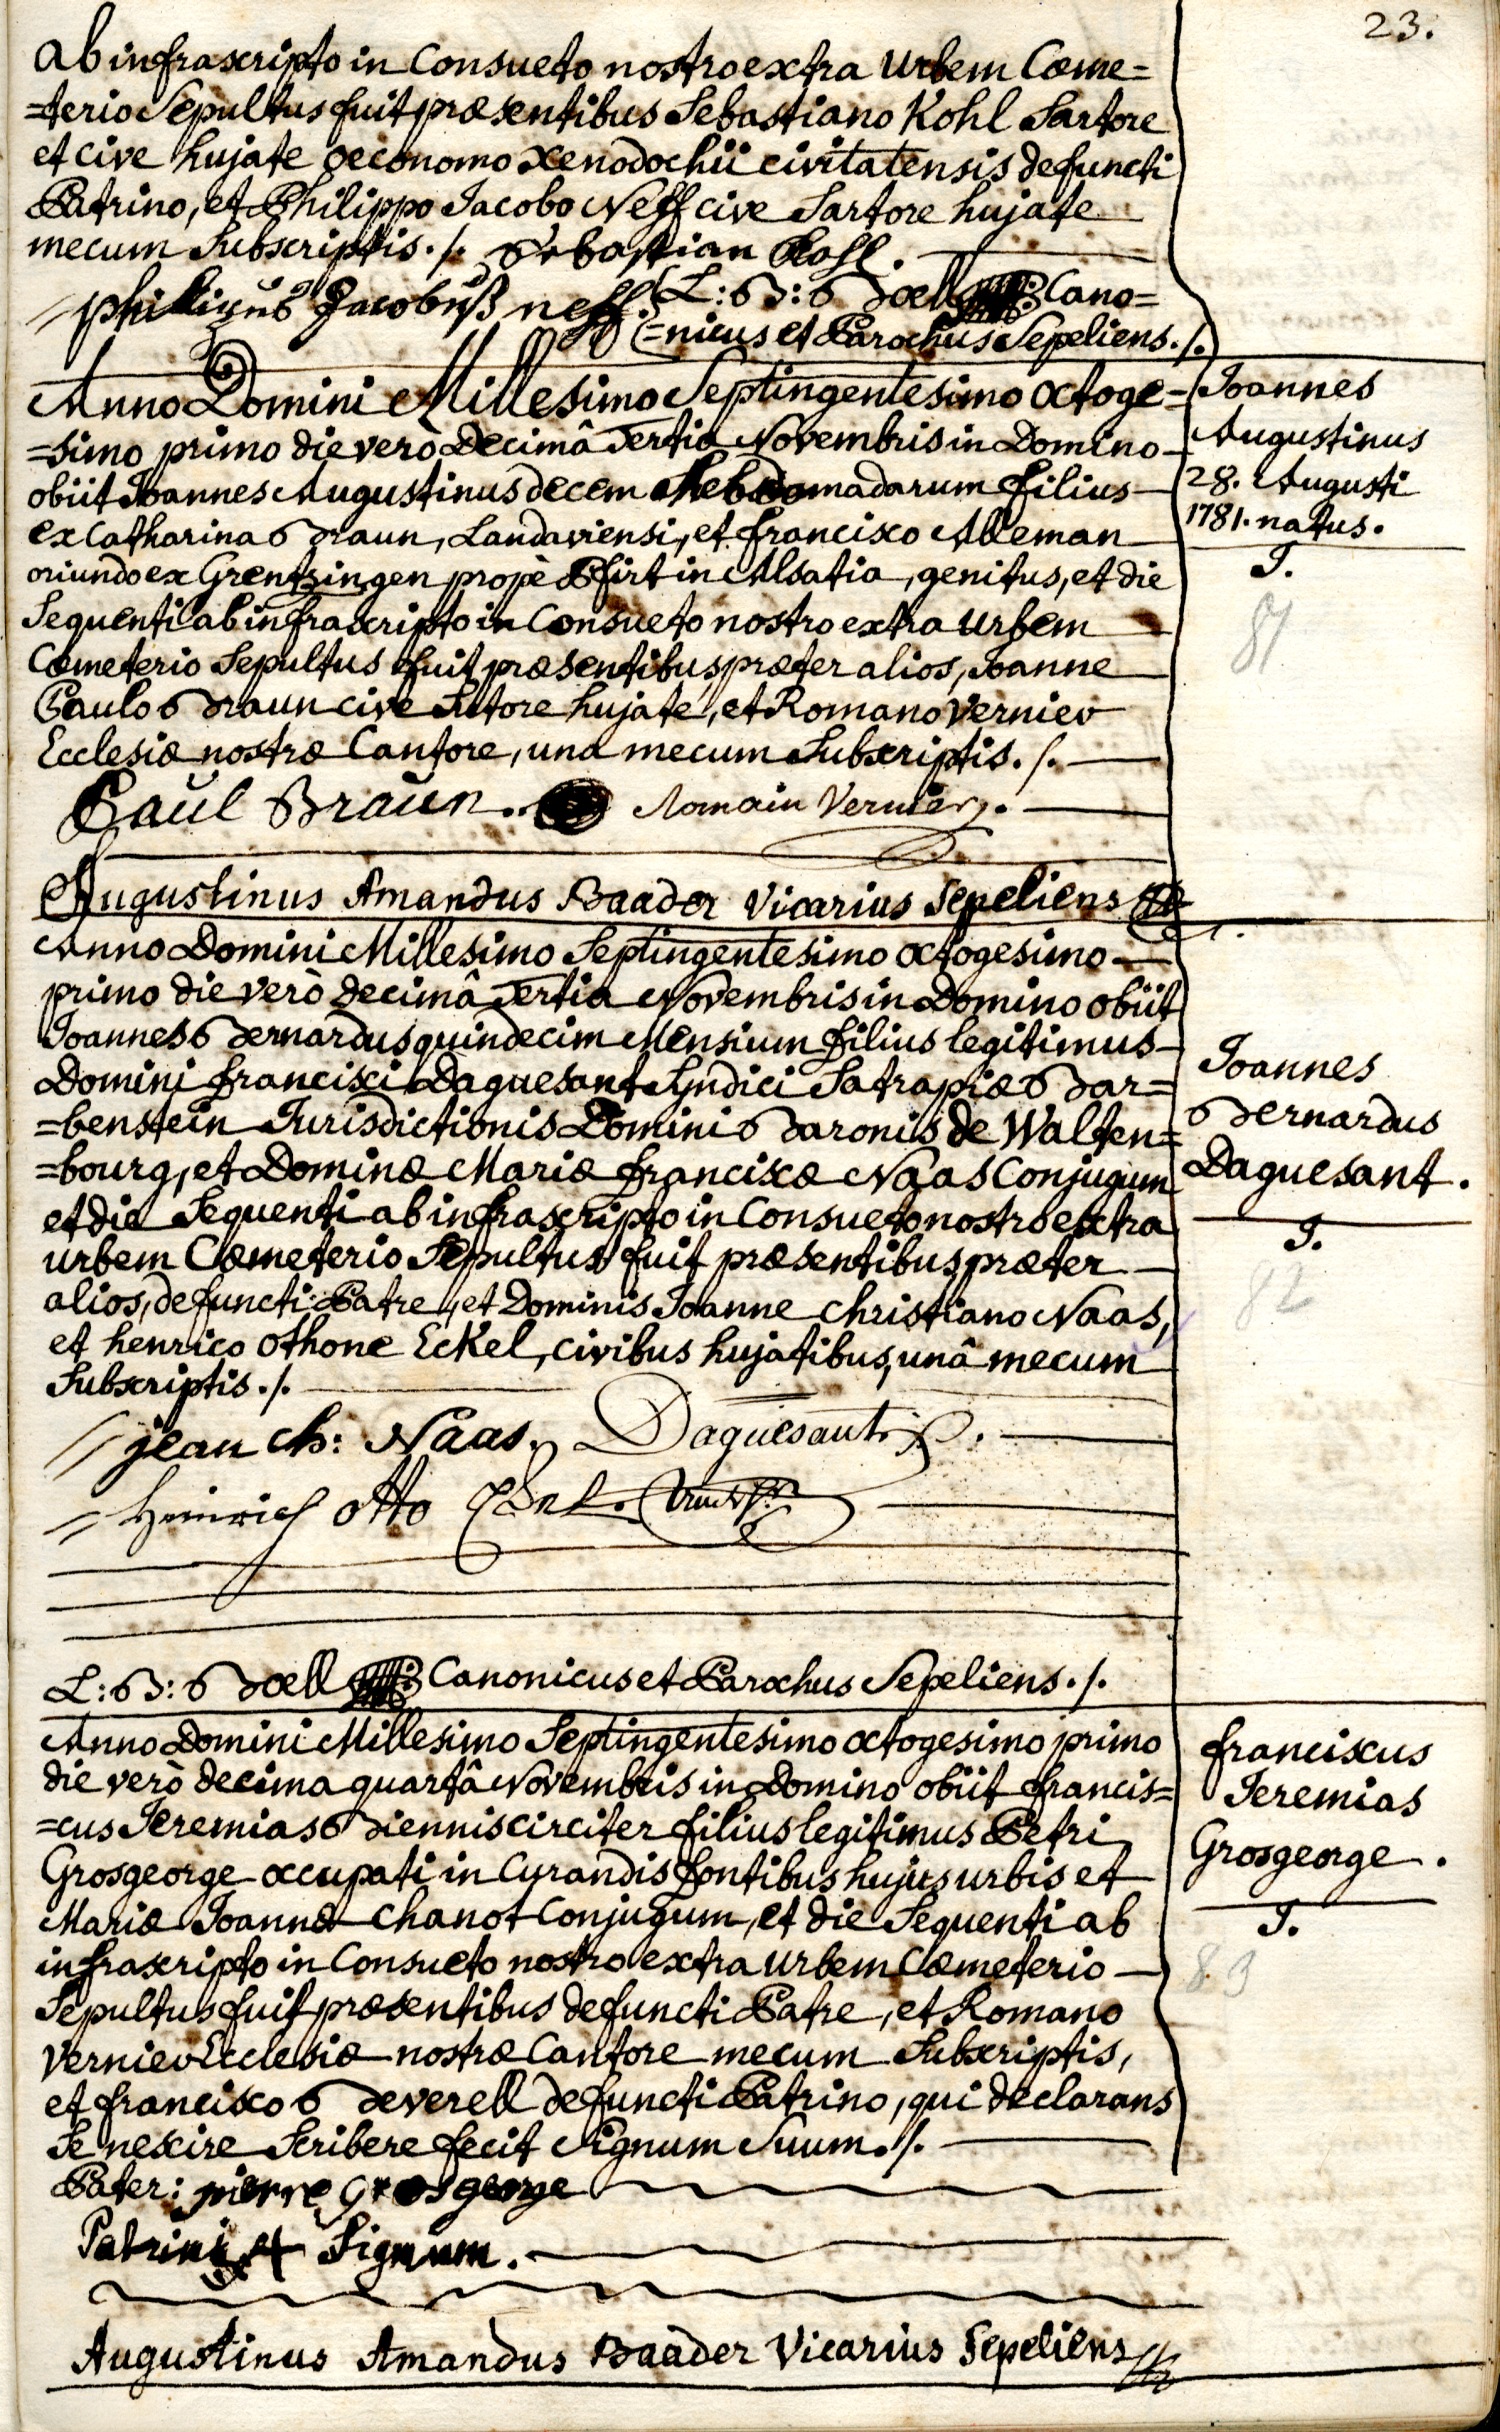 23.
ab infrascripto in Consueto nostro extra Urbem Cœme=
=terio Sepultus fuit præsentibus Sebastiano Kohl Sartore
et cive hujate œconomo Xenodochii civitatensis defuncti
Patrino, et Philippo Jacobo Neff cive Sartore hujate
mecum Subscriptis./. Sebastian Kohl.
Philligus Jacobuß neff. L:B: Boell Cano=
=nicus et Parochus Sepeliens./.
Anno Domini Millesimo Septingentesimo octoge=
=simo primo die verò Decimâ Tertia Novembris in Domino
obiit Joannes Augustinus decem Hebdomadarum filius
ex Catharina Braun, Landaviensi, et francisco Alleman
oriundo ex Grentzingen propè Pfirt in Alsatia, genitus, et die
Sequenti ab infrascripto in Consueto nostro extra Urbem
Cœmeterio Sepultus fuit præsentibus præter alios, Joanne
Paulo Braun cive Sutore hujate, et Romano Vernier
Ecclesiæ nostræ Cantore, una mecum Subscriptis./.
Paul Braun. Romain Vernier.
Augustinus Amandus Baader Vicarius Sepeliens
Joannes
Augustinus
28. Augusti
1781. natus.
J.
81
Anno Domini Millesimo Septingentesimo octogesimo
primo die verò decimâ Tertia Novembris in Domino obiit
Joannes Bernardus quindecim Mensium filius legitimus
Domini francisci Daguesant Syndici Satrapiæ Bar=
=benstein Jurisdictionis Domini Baronis de Walten=
=bourg, et Dominæ Mariæ franciscæ Naas Conjugum
et die Sequenti ab infrascripto in Consueto nostro extra
urbem Cœmeterio Sepultus fuit præsentibus præter
alios, defuncti Patre, et Dominis Joanne Christiano Naas,
et henrico Othone Eckel, civibus hujatibus, unâ mecum
Subscriptis./.
jean Ch: Naas. Daguesant
Heinrich otto Eckel.
L:B: Boell Canonicus et Parochus Sepeliens./.
Joannes
Bernardus
Daguesant.
J.
82
Anno Domini Millesimo Septingentesimo octogesimo primo
die verò decima quartâ Novembris in Domino obiit francis=
=cus Jeremias Biennis circiter filius legitimus Petri
Grosgeorge occupati in Curandis fontibus hujus urbis et
Mariæ Joannæ Chanot Conjugum, et die Sequenti ab
infrascripto in Consueto nostro extra Urbem Cœmeterio
Sepultus fuit præsentibus defuncti Patre, et Romano
Vernier Ecclesiæ nostræ Cantore mecum Subscriptis,
et francisco Beverell defuncti Patrino, qui declarans
Se nescire Scribere fecit Signum Suum./.
Pater: pierre Grosgeorge
Patrini + Signum.
Augustinus Amandus Baader Vicarius Sepeliens
franciscus
Jeremias
Grosgeorge.
J.
83